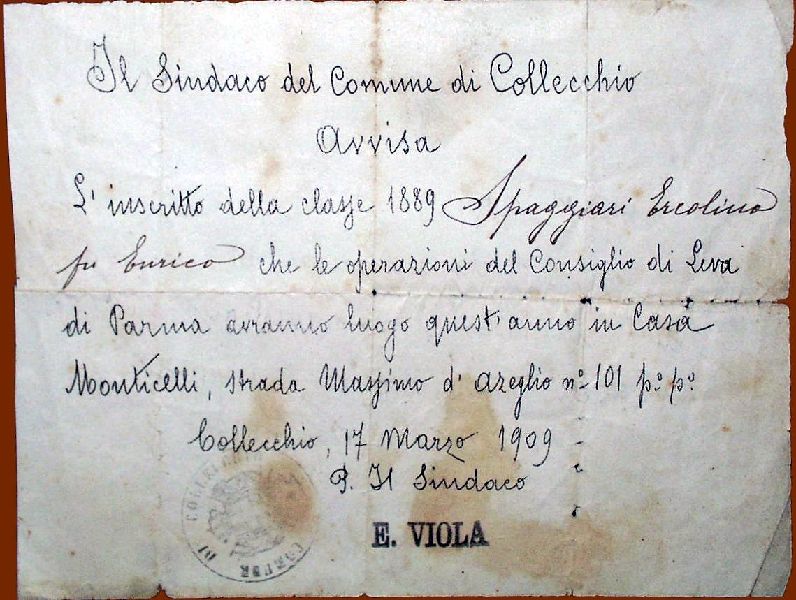 Il Sindaco del Comune di Collecchio
Avvisa
L' inscritto della classe 1889 Spaggiari Ercolino
fu Enrico che le operazioni del Consiglio di Leva
di Parma avranno luogo quest'anno in Casa
Monticelli, strada Massimo d' azeglio nº 101 pº pº
Collecchio, 17 Marzo 1909
P. Il Sindaco
E. VIOLA
DI COLLE